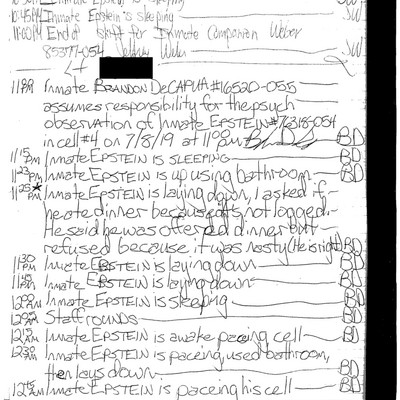 10:45PM Inmate Epstein's sleeping SW
11:00PM End of shift for Inmate Companion Weber SW
85377-054
11PM Inmate BRANDON DeCAPUA #16520-055
assumes responsibility for the psych
observation of Inmate EPSTEIN #76318-054
in cell #4 on 7/8/19 at 11:00pm BD
11:15PM Inmate EPSTEIN is SLEEPING BD
11:23PM Inmate EPSTEIN is up using bathroom BD
11:25PM* Inmate EPSTEIN is laying down, I asked if
he ate dinner because it's not logged.
He said he was offered dinner but
refused because it was nasty (He is right) BD
11:30PM Inmate EPSTEIN is laying down BD
Inmate EPSTEIN is laying down BD
12:00AM Inmate EPSTEIN is sleeping BD
Staff rounds BD
Inmate EPSTEIN is awake pacing cell BD
12:30AM Inmate EPSTEIN is pacing, used bathroom,
then lays down BD
Inmate EPSTEIN is pacing his cell BD